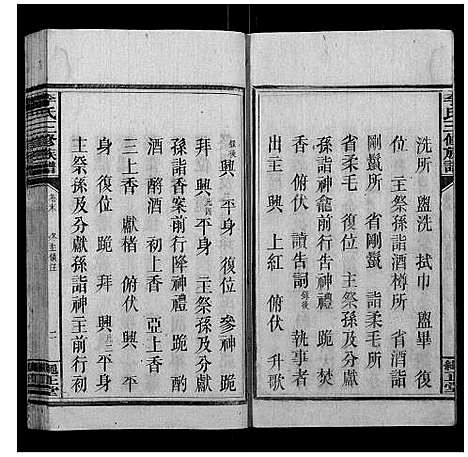 李氏三修族譜
洗所 盥洗 拭巾 盥畢 復
位 主祭孫詣酒樽所 省酒詣
剛鬣所 省剛鬣 詣柔毛所
省柔毛 復位 主祭孫及分獻
孫詣神龕前行告神禮 跪 上
香 俯伏 讀告詞 錄後 執事者
出主 興 上紅 俯伏 升歌
錄後 興 平身 復位 參神 跪
拜 興 平身 主祭孫及分獻
孫詣香案前行降神禮 跪 酌
酒 酹酒 初上香 亞上香
三上香 獻楮 俯伏 興
平身 復位 跪 拜 興 平身
主祭孫及分獻孫詣神主前行初
李氏三修族譜
卷末